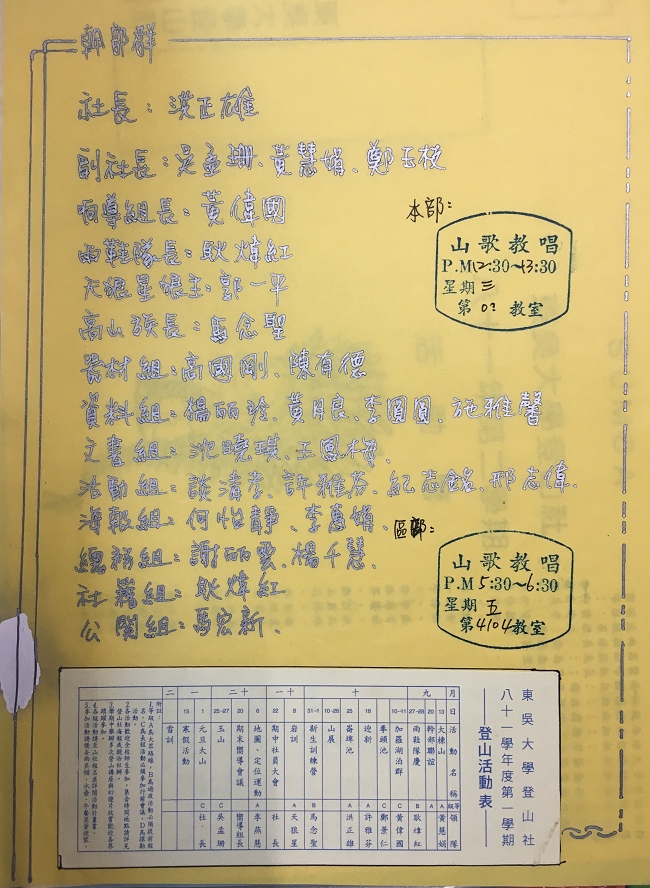 朝部群
社長：洪正雄
副社長：吳孟珊、黃慧娟、鄭玉枝
嚮導組長：黃偉國
雨鞋隊長：耿煒紅
天狼星狼主：郭一平
高山族長：馬念聖
器材組：高國剛、陳有德
資料組：楊丽玲、黃月良、李圓圓、施雅馨
文書組：沈曉琪、王鳳梅、
活動組：談清孝、許雅芬、紀志銘、邢志偉、
海報組：何怡靜、李蕙娟、
總務組：謝丽雲、楊千慧、
社籍組：耿煒紅
公關組：馬宏新、
本部：
山歌教唱
P.M12:30~13:30
星期三
第 教室
區部：
山歌教唱
P.M5:30~6:30
星期五
第4104教室
東吳大學登山社
八十一學年度第一學期
登山活動表
月 日 活動名稱 等級 領隊
九 13 大棟山 A 黃慧娟
20 幹部聯誼 A
27-28 雨鞋隊慶 B 耿煒紅
十 10-11 加羅湖泊群 C 黃偉國
拳頭池 C 鄭景仁
18 迎新 A 許雅芬
25 崙埤池 A 洪正雄
10-26 山展
31-1 新生訓練營 B 馬念聖
十一 8 岩訓 A 天狼星
22 期中社員大會 社長
十二 6 地圖、定位運動 A 李燕慧
20 期末嚮導會議 嚮導組長
25-27 玉山 C 吳孟珊
一 1 元旦大山 C 社長
15 寒假活動
二 雪訓
附註：